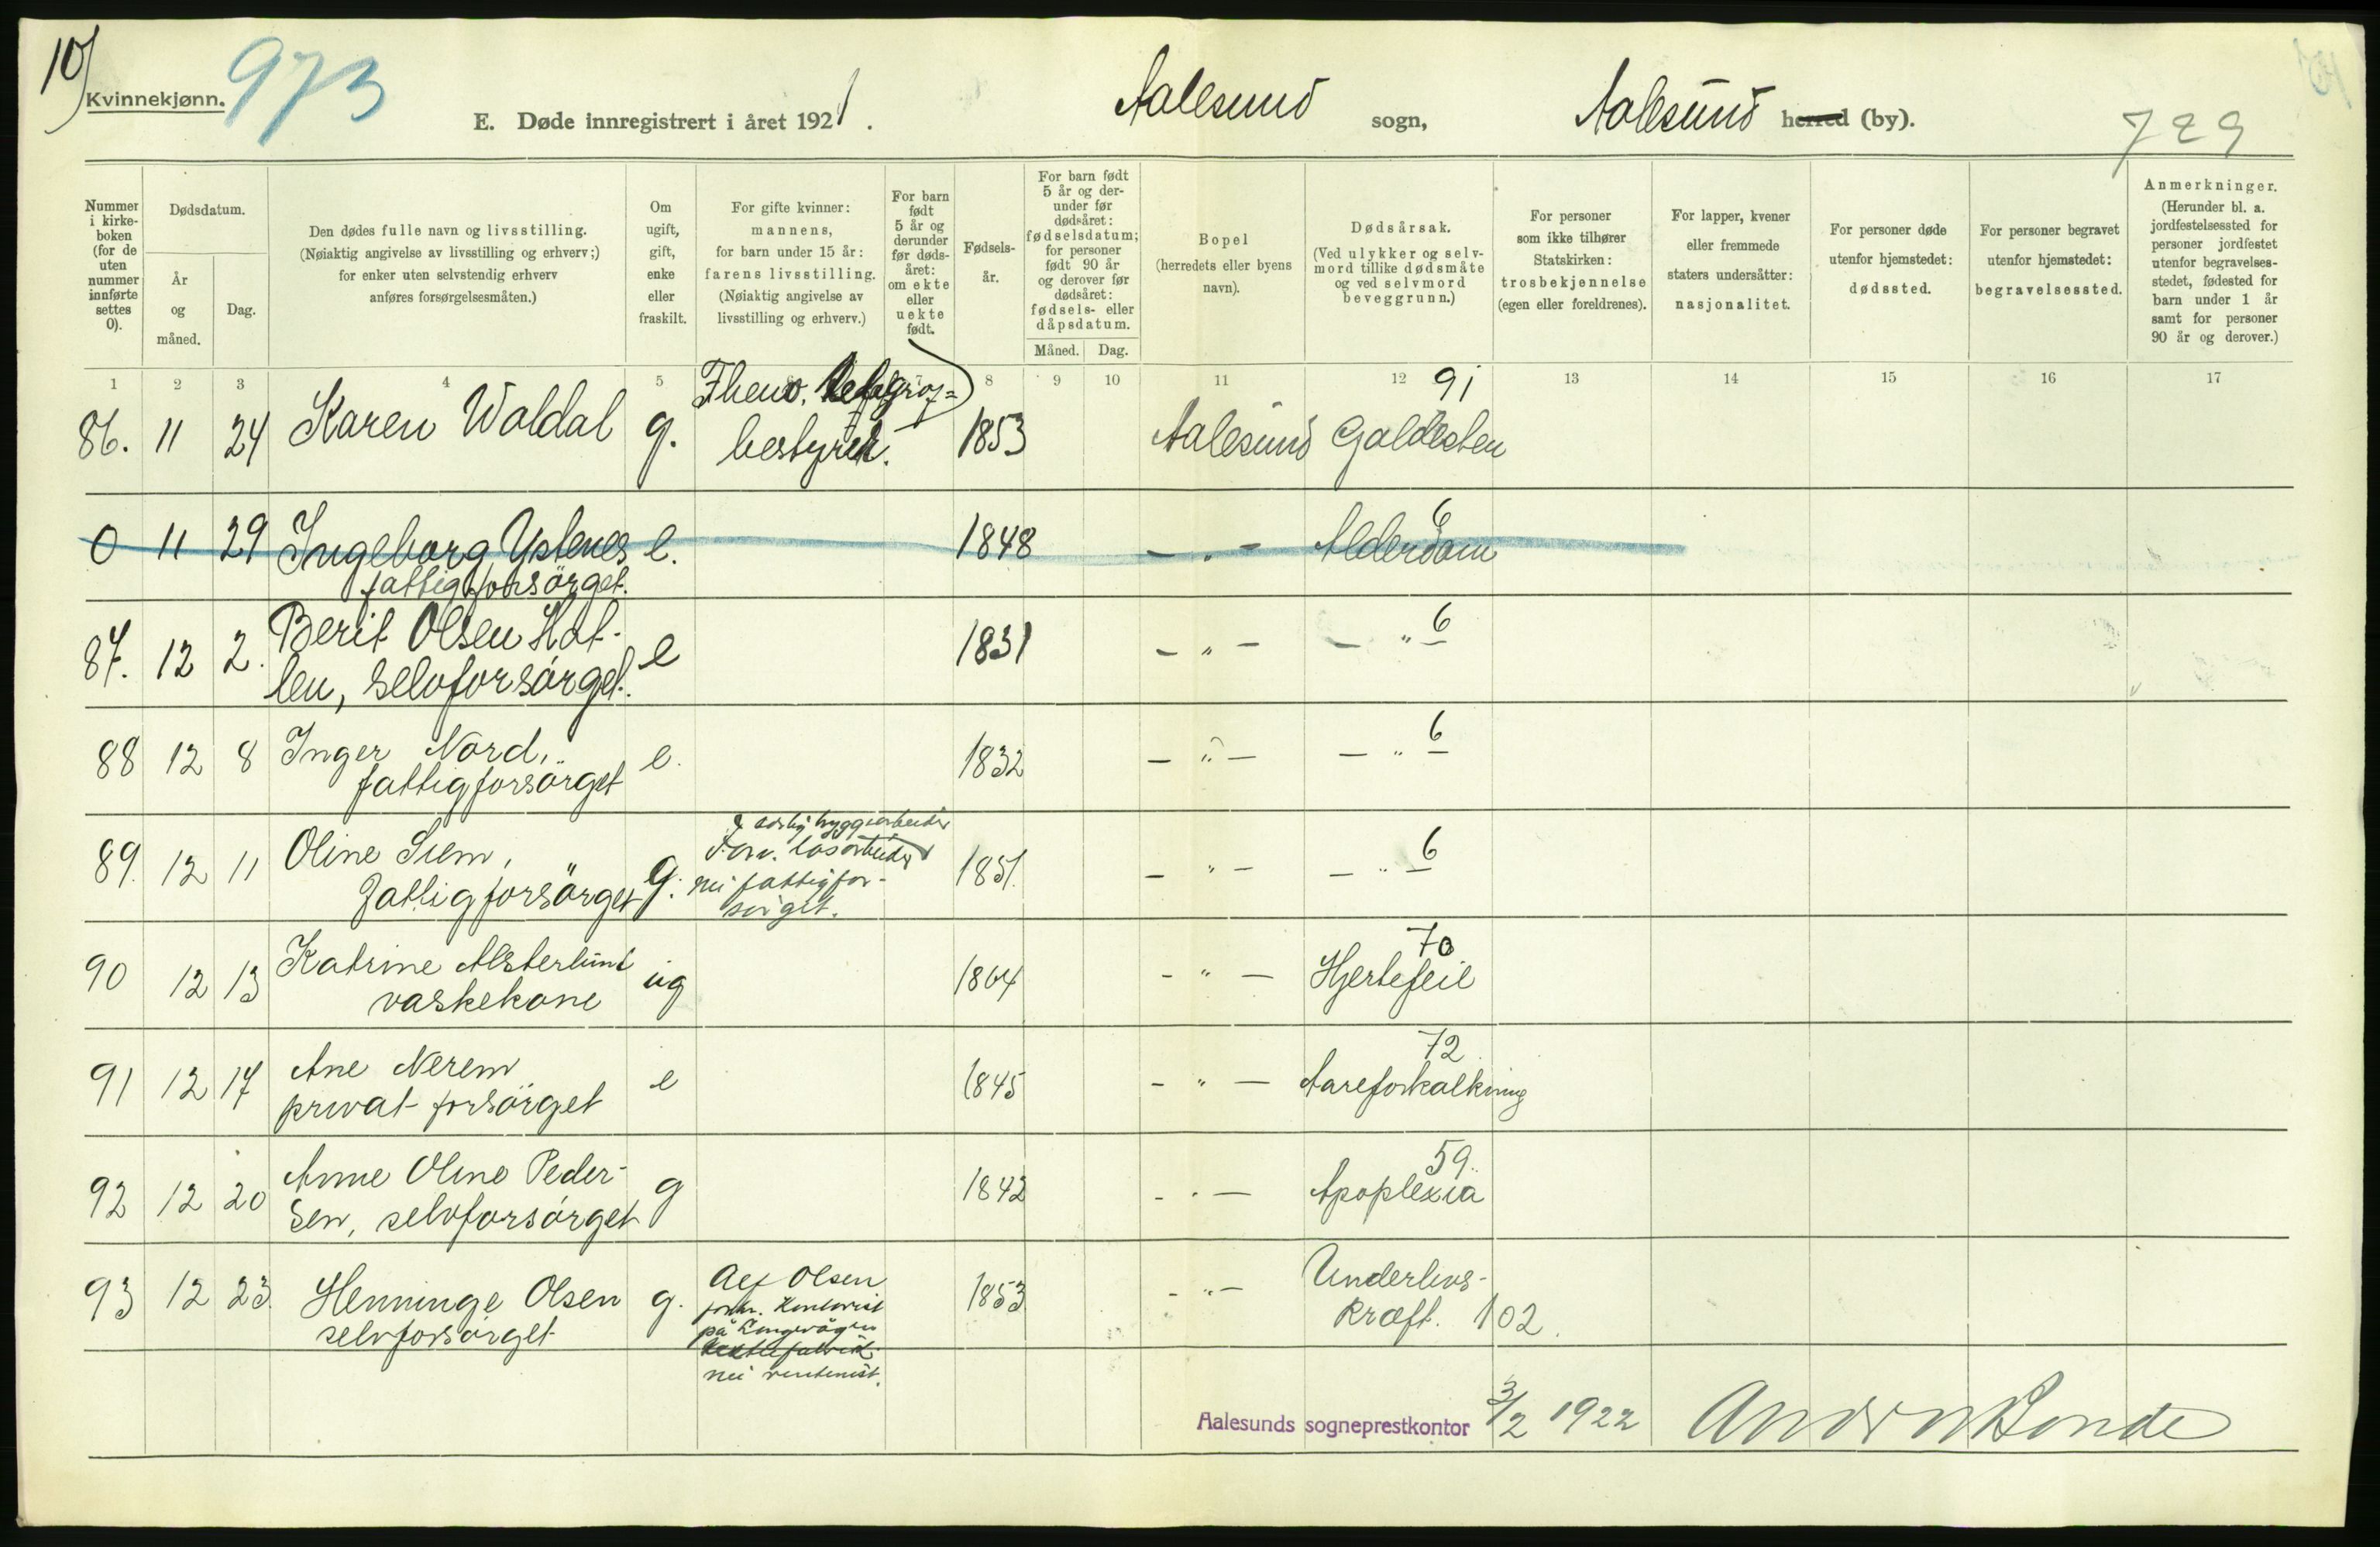 10)
Kvinnekjønn.
973
E. Døde innregistrert i året 1921.
Aalesund sogn,
Aalesund herred (by).
729
Nummer i kirke-boken (for de uten nummer innførte settes 0).
Dødsdatum.
År og måned.
Dag.
Den dødes fulle navn og livsstilling.
(Nøiaktig angivelse av livsstilling og erhverv;)
for enker uten selvstendig erhverv
anføres forsørgelsesmåten.)
Om ugift, gift, enke eller fraskilt.
For gifte kvinner:
mannens,
for barn under 15 år:
farens livsstilling.
(Nøiaktig angivelse av
livsstilling og erhverv.)
For barn født 5 år og derunder før døds-året: om ekte eller uekte født.
Fødsels-år.
For barn født 5 år og der-under før dødsåret: fødselsdatum; for personer født 90 år og derover før dødsåret: fødsels- eller dåpsdatum.
Måned. Dag.
Bopel
(herredets eller byens navn).
Dødsårsak.
(Ved ulykker og selv-mord tillike dødsmåte og ved selvmord beveggrunn.)
For personer som ikke tilhører Statskirken: trosbekjennelse (egen eller foreldrenes).
For lapper, kvener eller fremmede staters undersåtter: nasjonalitet.
For personer døde utenfor hjemstedet: dødssted.
For personer begravet utenfor hjemstedet: begravelsessted.
Anmerkninger.
(Herunder bl. a. jordfestelsessted for personer jordfestet utenfor begravelses-stedet, fødested for barn under 1 år samt for personer 90 år og derover.)
1 2 3 4 5 6 7 8 9 10 11 12 13 14 15 16 17
91
86. 11 24 Karen Waldal g. bestyrer. 1853 Aalesund Galdesten
6
0 11 29 Ingeborg Ystenes e. 1848 - " - Alderdom
fattigforsörget.
6
87. 12 2. Berit Olsen Hat- e 1831 - " - - " -
len, selvforsörget.
6
88 12 8 Inger Nord, e. 1832 - " - - " -
fattigforsörget
6
89. 12 11 Oline Siem, g. 1851. - " - - " -
fattigforsörget
nu fattigfor-
sörget.
70
90 12 13 Katrine Alsterlund ug 1864 - " - Hjertefeil
vaskekone
72
91 12 17 Ane Nerem e 1845 - " - Aareforkalkning
privat forsörget
59.
92 12 20 Anne Oline Peder- g 1842 - " - Apoplexia
sen, selvforsörget
93 12 23. Henninge Olsen g. Olsen 1853 - " - Underlivs-
selvforsörget kræft. 102.
nu rentenist.
Aalesunds sogneprestkontor 3/2 1922